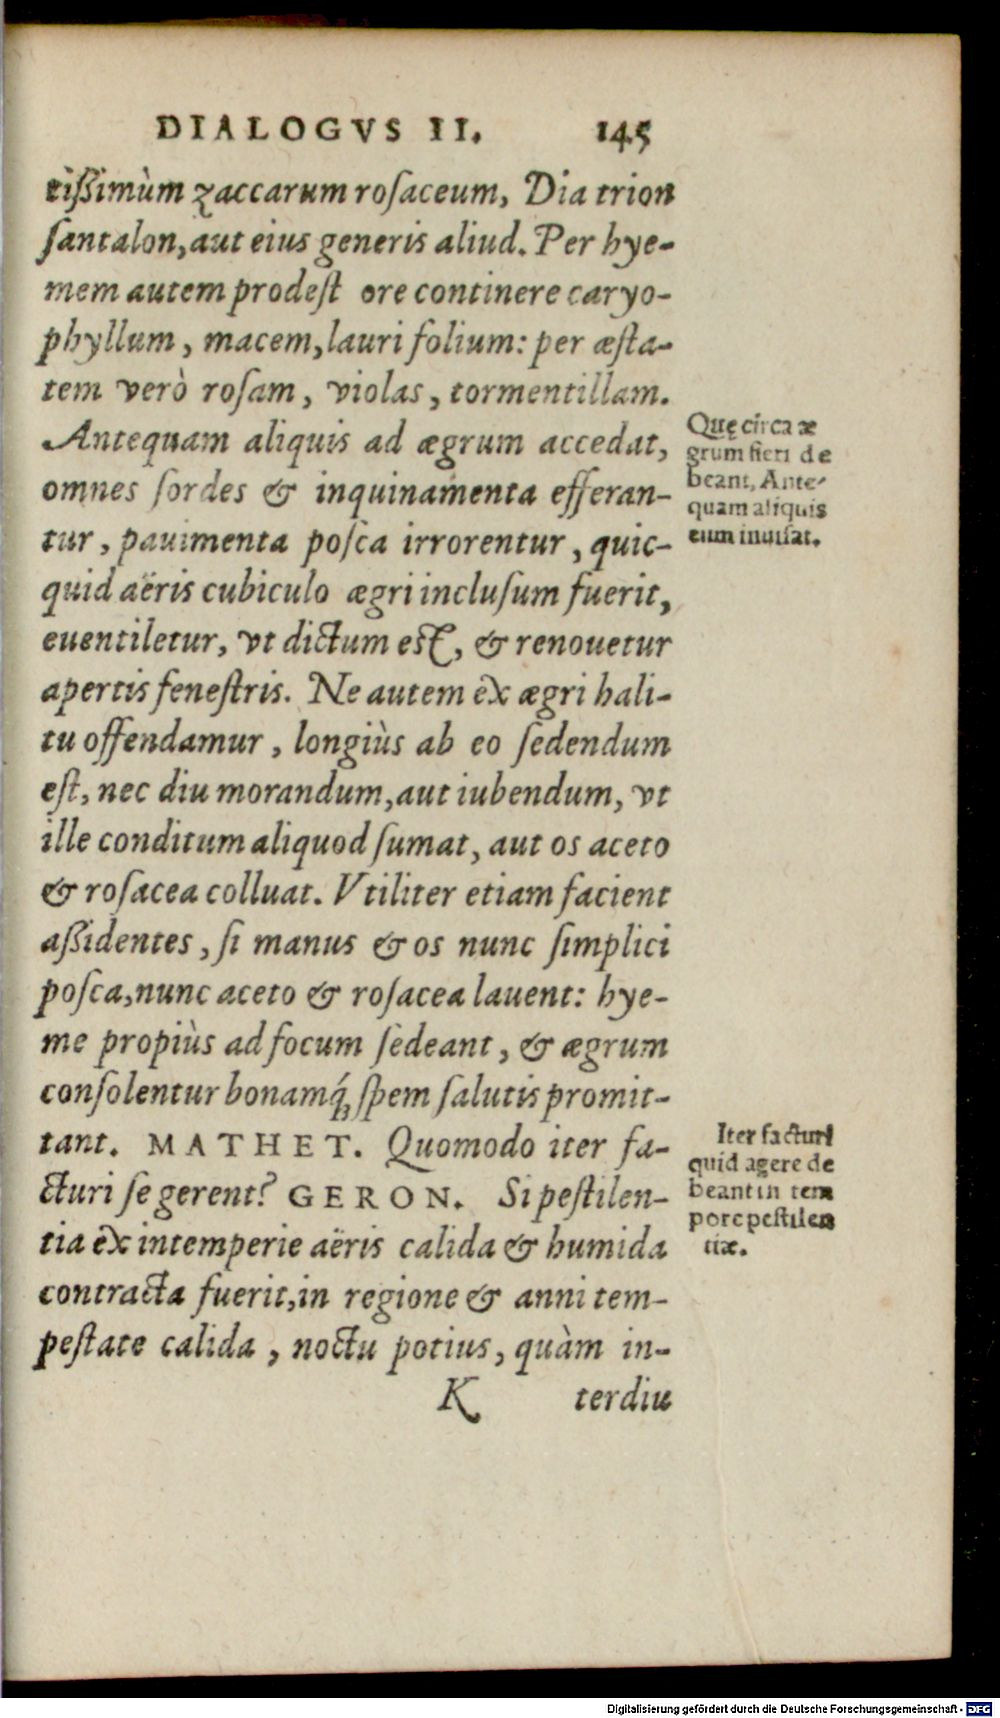 DIALOGVS II. 145
tißimùm zaccarum roſaceum, Dia trion
ſantalon, aut eius generis aliud. Per hye-
mem autem prodeſt ore continere caryo-
phyllum, macem, lauri folium: per æſta-
tem verò roſam, violas, tormentillam.
Antequam aliquis ad ægrum accedat,
omnes ſordes & inquinamenta efferan-
tur, pauimenta poſca irrorentur, quic-
quid aëris cubiculo ægri incluſum fuerit,
euentiletur, vt dictum eſt, & renouetur
apertis feneſtris. Ne autem ex ægri hali-
tu offendamur, longiùs ab eo ſedendum
eſt, nec diu morandum, aut iubendum, vt
ille conditum aliquod ſumat, aut os aceto
& roſacea colluat. Vtiliter etiam facient
aßidentes, ſi manus & os nunc ſimplici
poſca, nunc aceto & roſacea lauent: hye-
me propiùs ad focum ſedeant, & ægrum
conſolentur bonamq́; ſpem ſalutis promit-
tant. MATHET. Quomodo iter fa-
cturi ſe gerent? GERON. Si peſtilen-
tia ex intemperie aëris calida & humida
contracta fuerit, in regione & anni tem-
peſtate calida, noctu potius, quàm in-
K terdiu
Quę circa æ
grum fieri de
beant, Ante-
quam aliquis
eum inuiſat.
Iter facturi
quid agere de
beant in tem
pore peſtilen
tiæ.
Digitalisierung gefördert durch die Deutsche Forschungsgemeinschaft - DFG